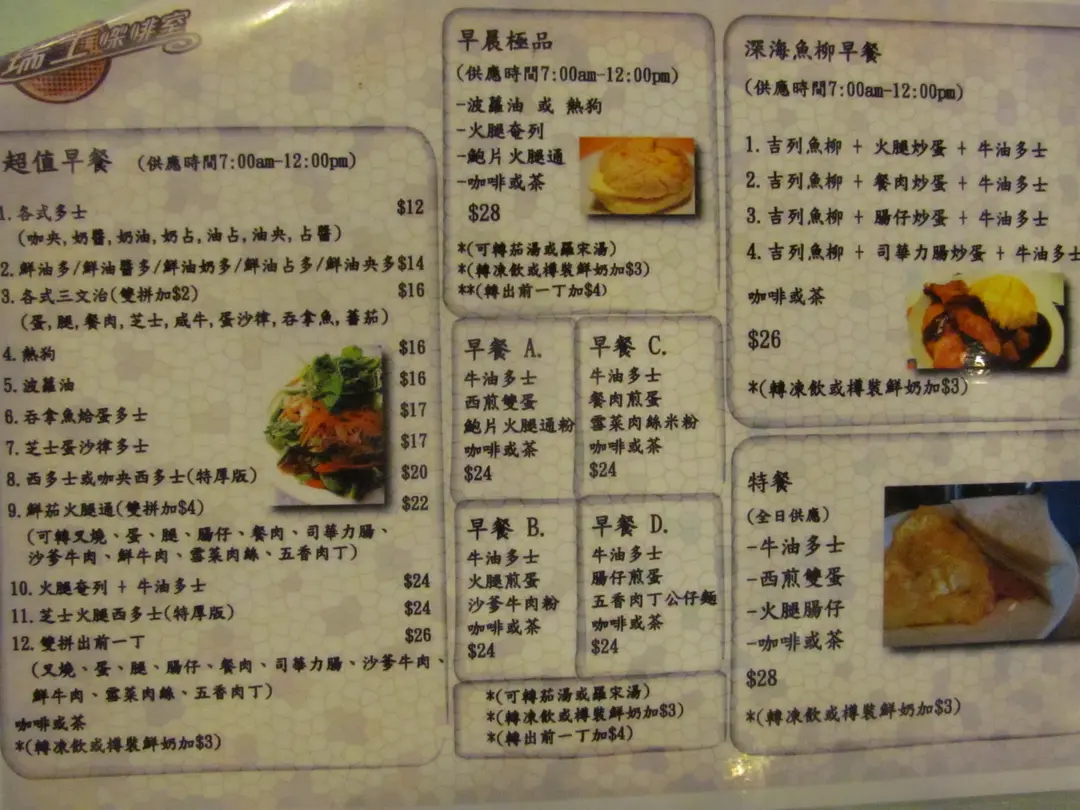 瑞士咖啡室
超值早餐 (供應時間7:00am-12:00pm)
1.各式多士 $12
(咖央,奶醬,奶油,奶占,油占,油央,占醬)
2.鮮油多/鮮油醬多/鮮油奶多/鮮油占多/鮮油央多$14
3.各式三文治(雙拼加$2) $16
(蛋,腿,餐肉,芝士,咸牛,蛋沙律,吞拿魚,蕃茄)
4.熱狗 $16
5.波蘿油 $16
6.吞拿魚蛤蛋多士 $17
7.芝士蛋沙律多士 $17
8.西多士或咖央西多士(特厚版) $20
9.鮮茄火腿通(雙拼加$4) $22
(可轉叉燒、蛋、腿、腸仔、餐肉、司華力腸、
沙爹牛肉、鮮牛肉、雪菜肉絲、五香肉丁)
10.火腿奄列 + 牛油多士 $24
11.芝士火腿西多士(特厚版) $24
12.雙拼出前一丁 $26
(叉燒、蛋、腿、腸仔、餐肉、司華力腸、沙爹牛肉、
鮮牛肉、雪菜肉絲、五香肉丁)
咖啡或茶
*(轉凍飲或樽裝鮮奶加$3)
早晨極品
(供應時間7:00am-12:00pm)
-波蘿油 或 熱狗
-火腿奄列
-鮑片火腿通
-咖啡或茶
$28
*(可轉茄湯或羅宋湯)
*(轉凍飲或樽裝鮮奶加$3)
**(轉出前一丁加$4)
早餐 A.
牛油多士
西煎雙蛋
鮑片火腿通粉
咖啡或茶
$24
早餐 C.
牛油多士
餐肉煎蛋
雪菜肉絲米粉
咖啡或茶
$24
早餐 B.
牛油多士
火腿煎蛋
沙爹牛肉粉
咖啡或茶
$24
早餐 D.
牛油多士
腸仔煎蛋
五香肉丁公仔麵
咖啡或茶
$24
*(可轉茄湯或羅宋湯)
*(轉凍飲或樽裝鮮奶加$3)
*(轉出前一丁加$4)
深海魚柳早餐
(供應時間7:00am-12:00pm)
1.吉列魚柳 + 火腿炒蛋 + 牛油多士
2.吉列魚柳 + 餐肉炒蛋 + 牛油多士
3.吉列魚柳 + 腸仔炒蛋 + 牛油多士
4.吉列魚柳 + 司華力腸炒蛋 + 牛油多士
咖啡或茶
$26
*(轉凍飲或樽裝鮮奶加$3)
特餐
(全日供應)
-牛油多士
-西煎雙蛋
-火腿腸仔
-咖啡或茶
$28
*(轉凍飲或樽裝鮮奶加$3)